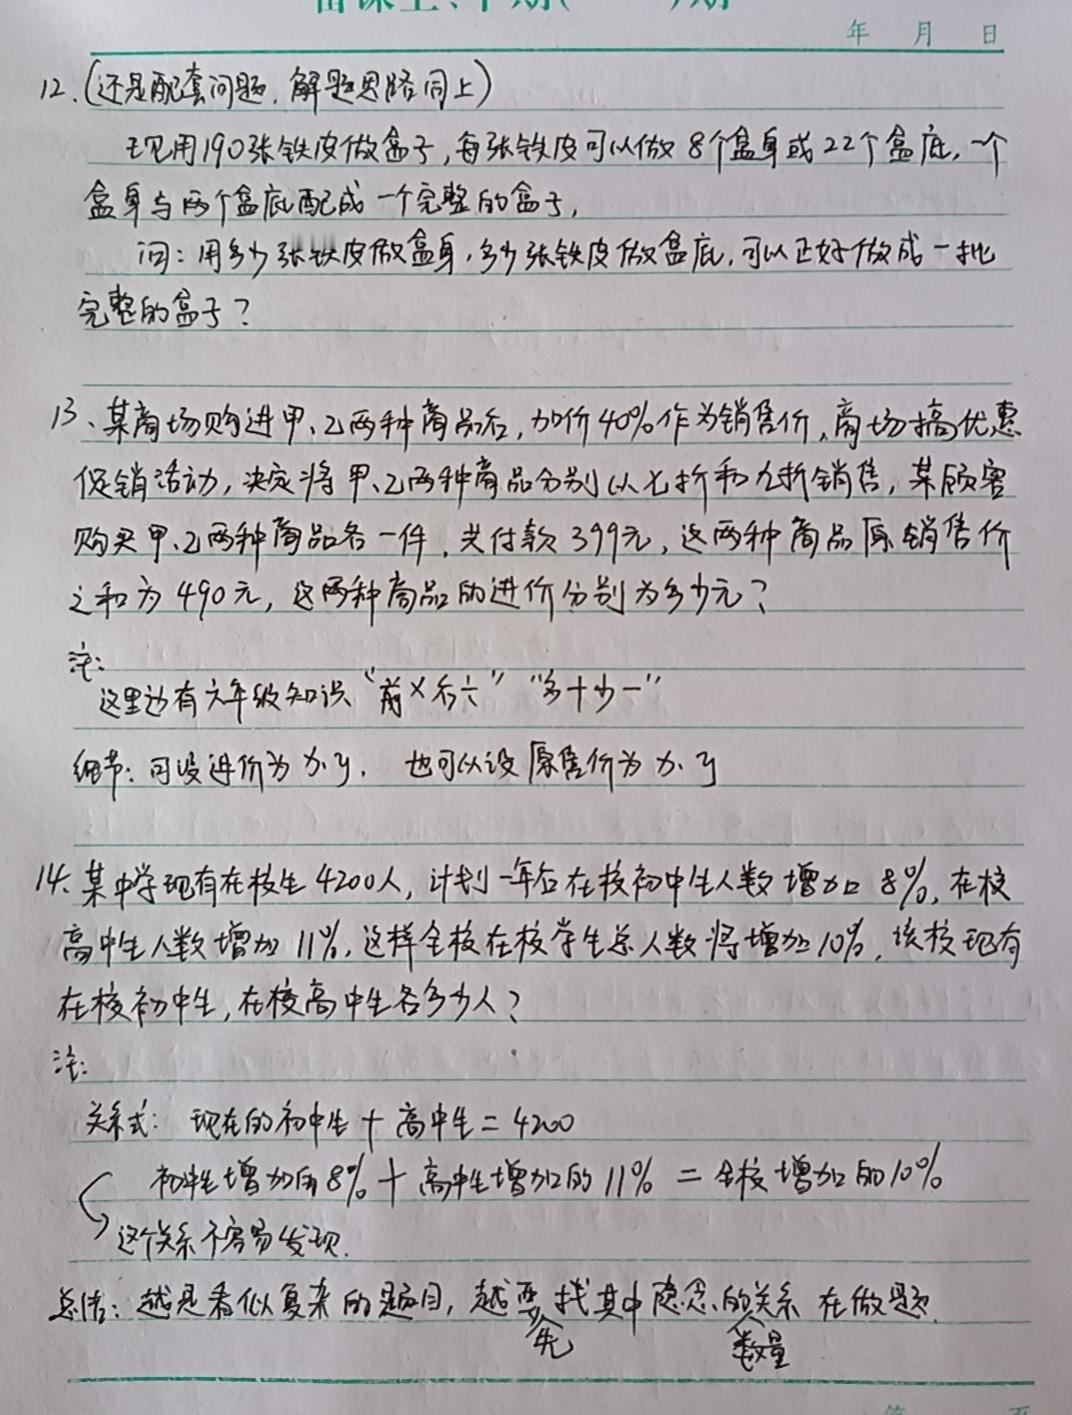 年 月 日
12.(还是配套问题,解题思路同上)
现用190张铁皮做盒子,每张铁皮可以做8个盒身或22个盒底,一个
盒身与两个盒底配成一个完整的盒子,
问:用多少张铁皮做盒身,多少张铁皮做盒底,可以正好做成一批
完整的盒子?
13、某商场购进甲、乙两种商品后,加价40%作为销售价,商场搞优惠
促销活动,决定将甲、乙两种商品分别以七折和九折销售,某顾客
购买甲、乙两种商品各一件,共付款399元,这两种商品原销售价
之和为490元,这两种商品的进价分别为多少元?
注:
这里边有六年级知识“前×后÷”“多+少-”
细节:可设进价为x、y. 也可以设原售价为x、y
14.某中学现有在校生4200人,计划一年后在校初中生人数增加8%,在校
高中生人数增加11%,这样全校在校学生总人数将增加10%,该校现有
在校初中生,在校高中生各多少人?
注:
关系式:现在的初中生+高中生=4200
初中生增加的8%+高中生增加的11%=全校增加的10%
这个关系不容易发现.
总结:越是看似复杂的题目,越要先找其中隐含的数量关系在做题.